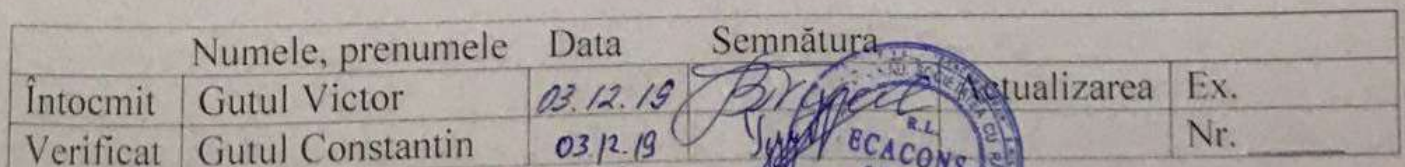 Numele, prenumele Data Semnătura
Întocmit Gutul Victor 03.12.19 Actualizarea Ex.
Verificat Gutul Constantin 03.12.19 Nr.
R.L.
BCACONS